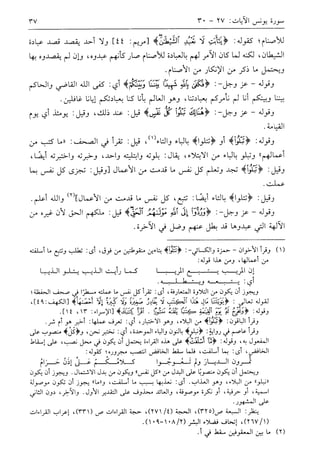 سورة يونس الآيات: ٢٧ - ٣٠ ٣٧
للأصنام؛ كقوله: ﴿يَٰٓأَبَتِ لَا تَعْبُدِ ٱلشَّيْطَٰنَ﴾ [مريم: ٤٤] ولا أحد يقصد قصد عبادة
الشيطان، لكنه لما كان الآمر لهم بالعبادة للأصنام صار كأنهم عبدوه، وإن لم يقصدوه بها
ويحتمل ما ذكر من الإنكار من الأصنام.
وقوله - عز وجل -: ﴿فَكَفَىٰ بِٱللَّهِ شَهِيدًۢا بَيْنَنَا وَبَيْنَكُمْ﴾ أي: كفى الله القاضي والحاكم
بيننا وبينكم أنا لم نأمركم بعبادتنا، وهو العالم بأنا كنا بعبادتكم إيانا غافلين.
وقوله - عز وجل -: ﴿هُنَالِكَ تَبْلُوا۟﴾ قيل: عند ذلك، وقيل: يومئذ أي يوم
القيامة.
وقوله: ﴿تَبْلُوا۟﴾ أو ﴿تتلوا﴾ بالباء والتاء(١)، قيل: تقرأ في الصحف: «ما كتب من
أعمالهم؟ وتبلو بالباء من الابتلاء، يقال: بلوته وابتليته واحد، وخبرته واختبرته أيضًا،
وقيل: ﴿تَبْلُوا۟﴾ تجد وتعلم كل نفس ما قدمت من الأعمال [وقيل: تجزى كل نفس بما
عملت.
وقيل: ﴿تتلوا﴾ بالتاء أيضًا: تتبع، كل نفس ما قدمت من الأعمال](٢) والله أعلم.
وقوله - عز وجل -: ﴿وَرُدُّوٓا۟ إِلَى ٱللَّهِ مَوْلَىٰهُمُ ٱلْحَقِّ﴾ قيل: ملكهم الحق لأن غيره من
الآلهة التي عبدوها قد بطل عنهم وضل في الآخرة.
(١) وقرأ الأخوان - حمزة والكسائي-: ﴿تتلوا﴾ بتاءين منقوطتين من فوق، أي: تطلب وتتبع ما أسلفته
من أعمالها، ومن هذا قوله:
إن المريب يتبع المريبا كما رأيت الذيب يتلو الذيبا
أي: يتبعه ويتطلبه.
ويجوز أن يكون من التلاوة المتعارفة، أي: تقرأ كل نفس ما عملته مسطرًا في صحف الحفظة؛
لقوله تعالى: ﴿يَٰوَيْلَتَنَا مَالِ هَٰذَا ٱلْكِتَٰبِ لَا يُغَادِرُ صَغِيرَةً وَلَا كَبِيرَةً إِلَّآ أَحْصَىٰهَا﴾ [الكهف: ٤٩]،
وقوله: ﴿وَنُخْرِجُ لَهُۥ يَوْمَ ٱلْقِيَٰمَةِ كِتَٰبًا يَلْقَىٰهُ مَنشُورًا ٱقْرَأْ كِتَٰبَكَ﴾ [الإسراء: ١٣، ١٤].
وقرأ الباقون: ﴿تَبْلُوا۟﴾ من البلاء، وهو الاختبار، أي: تعرف عملها: أخير هو أم شر.
وقرأ عاصم في رواية: ﴿نبلو﴾ بالنون والباء الموحدة، أي: نختبر نحن، و﴿كل﴾ منصوب على
المفعول به، وقوله: ﴿مَّآ أَسْلَفَتْ﴾ على هذه القراءة يحتمل أن يكون في محل نصب، على إسقاط
الخافض، أي: بما أسلفت، فلما سقط الخافض انتصب مجروره؛ كقوله:
تمرون الديار ولم تعوجوا كلامكم علي إذن حرام
ويحتمل أن يكون منصوبًا على البدل من «كل نفس» ويكون من بدل الاشتمال. ويجوز أن يكون
«نبلو» من البلاء، وهو العذاب. أي: نعذبها بسبب ما أسلفت، و«ما» يجوز أن تكون موصولة
اسمية، أو حرفية، أو نكرة موصوفة، والعائد محذوف على التقدير الأول، والآخر، دون الثاني
على المشهور.
ينظر: السبعة ص(٣٢٥)، الحجة (٢٧١/٤)، حجة القراءات ص (٣٣١)، إعراب القراءات
(٢٦٧/١)، إتحاف فضلاء البشر (١٠٨/٢-١٠٩).
(٢) ما بين المعقوفين سقط في أ.